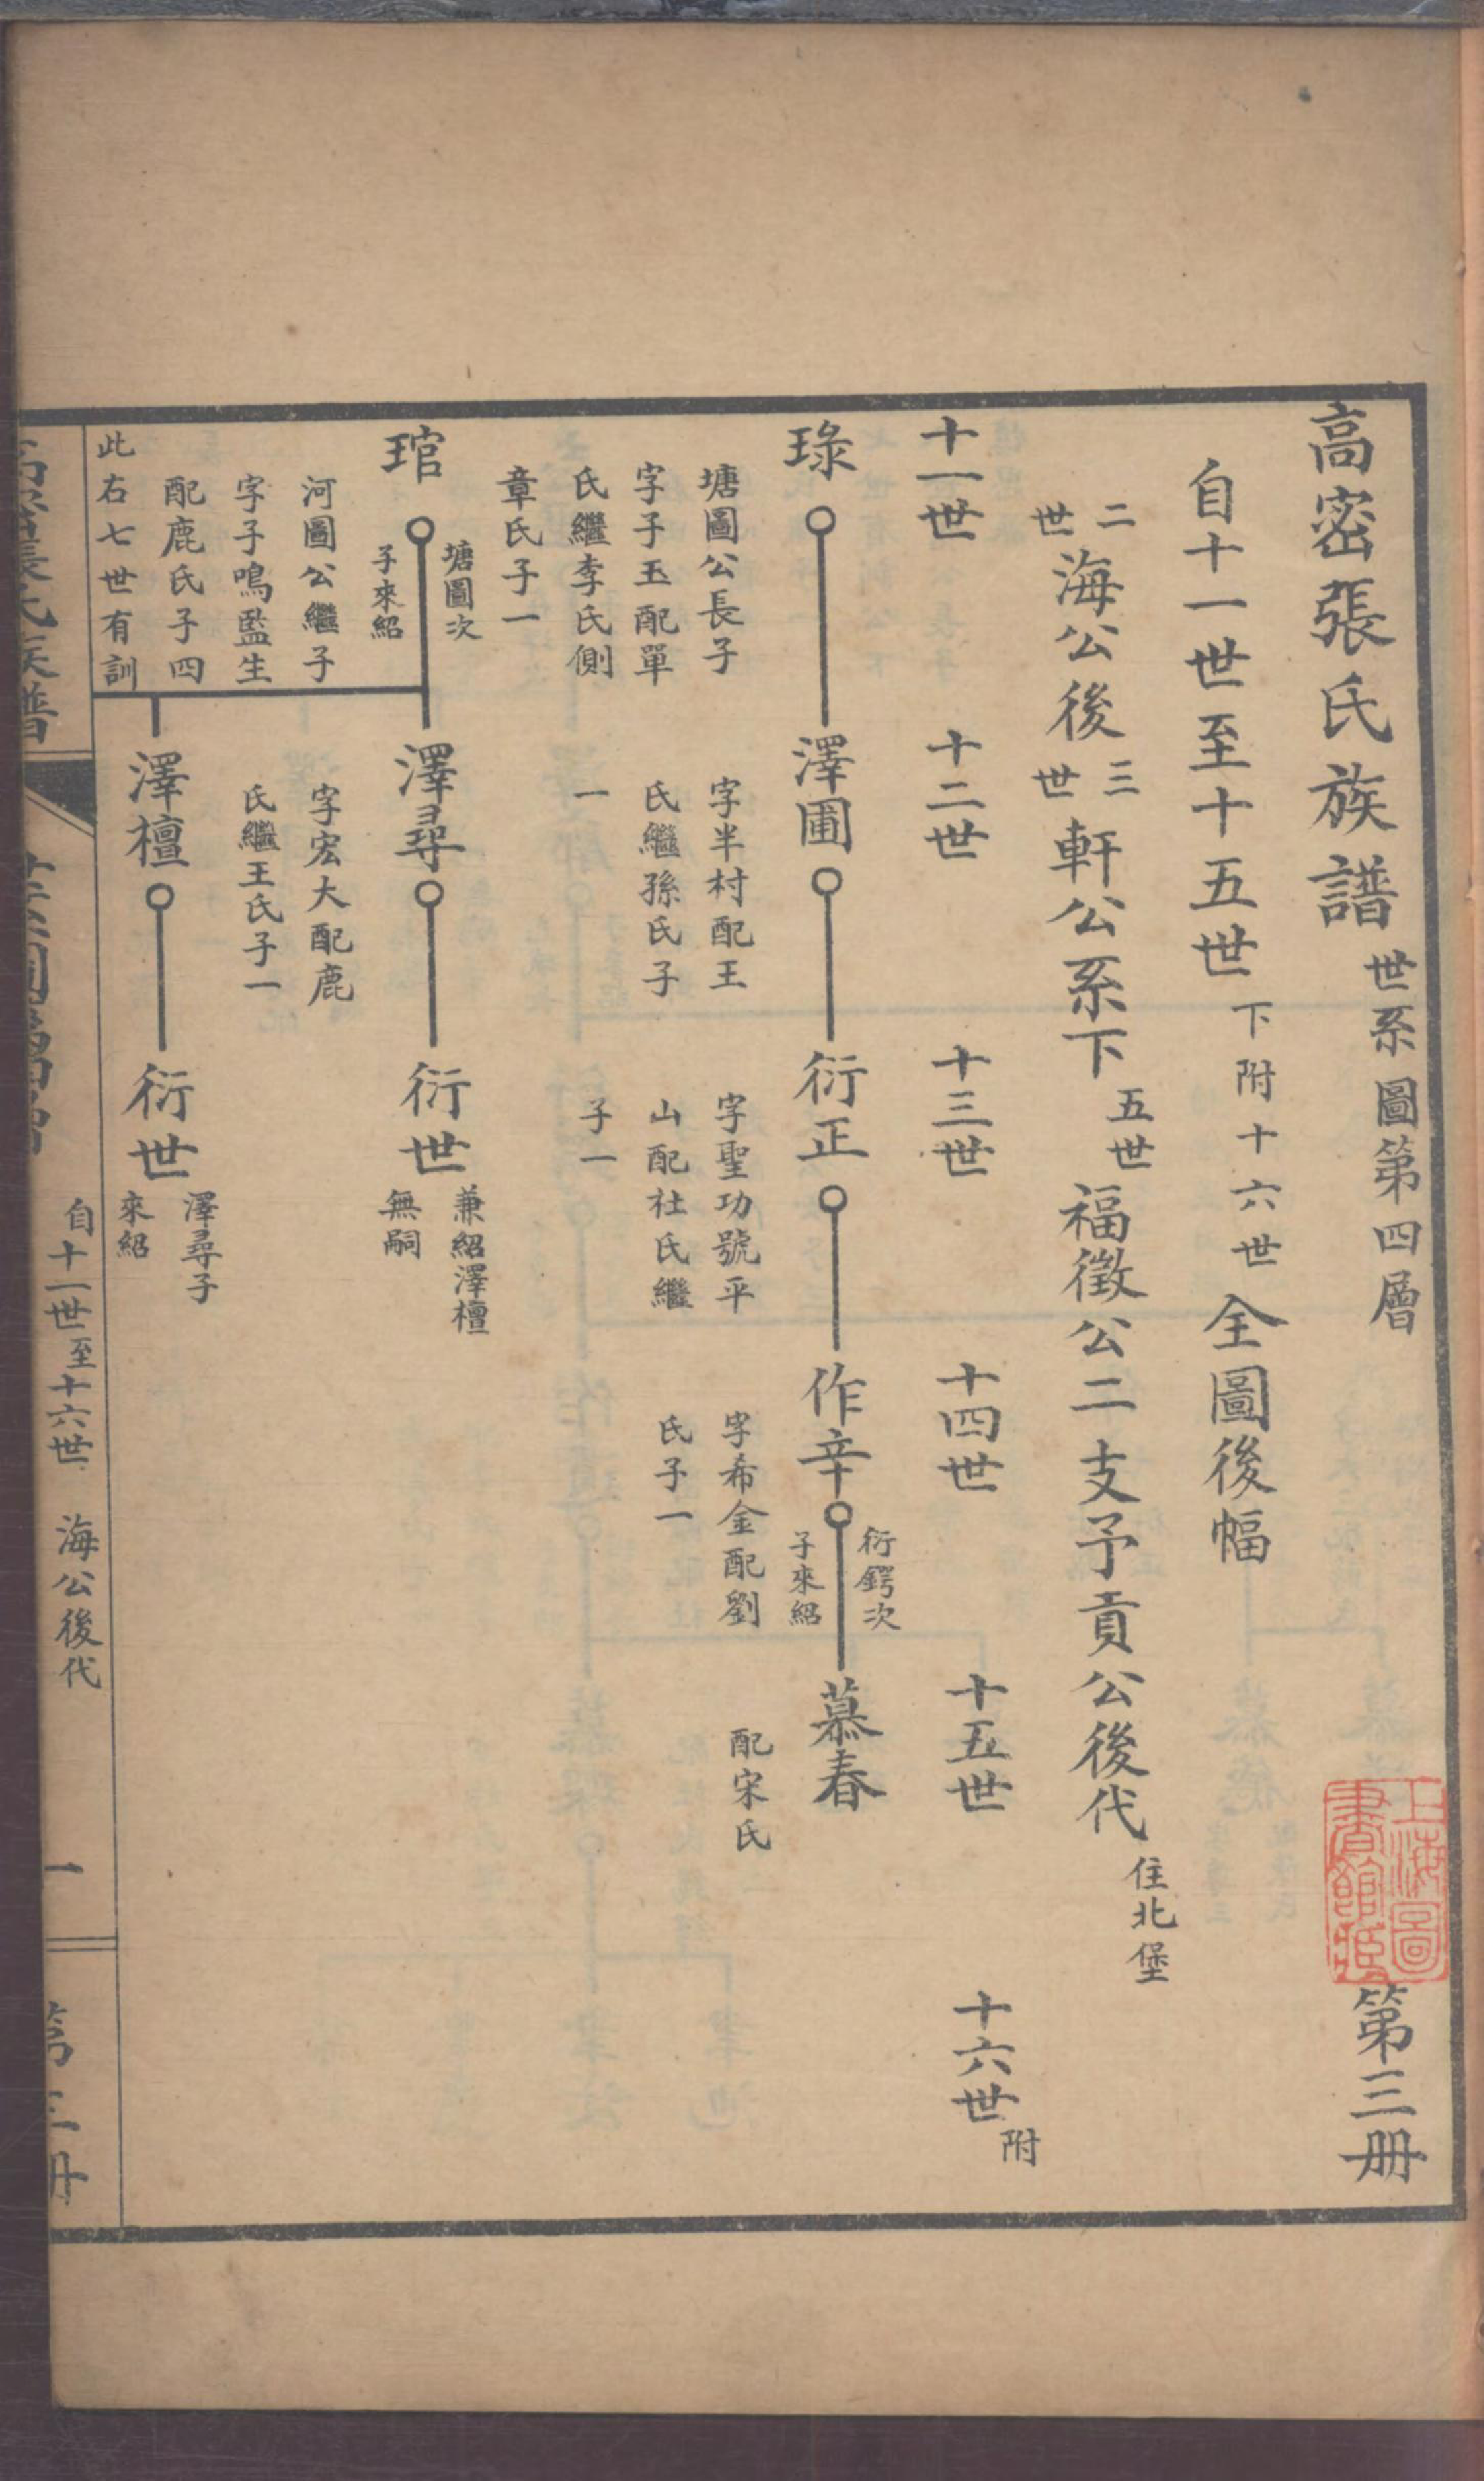 高密張氏族譜 世系圖第四層 第三册
上海圖書館藏
自十一世至十五世 下附十六世 全圖後幅
二世 海公後 三世 軒公系下 五世 福徵公二支予貢公後代 住北堡
十一世 十二世 十三世 十四世 十五世 十六世 附
琭 澤圃 衍正 作辛 慕春
衍鍔次
子來紹
塘圖公長子
字子玉配單
氏繼李氏側
章氏子一
字半村配王
氏繼孫氏子
一
字聖功號平
山配社氏繼
子一
字希金配劉
氏子一
配宋氏
琯 澤尋 衍世
塘圖次
子來紹
兼紹澤檀
無嗣
河圖公繼子
字子鳴監生
配鹿氏子四
字宏大配鹿
氏繼王氏子一
此右七世有訓
澤檀 衍世
澤尋子
來紹
自十一世至十六世 海公後代 一 第三册